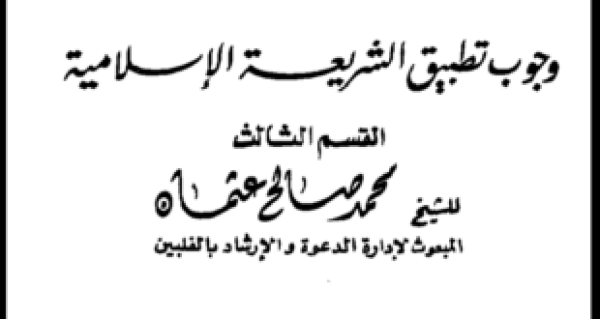 وجوب تطبيق الشريعة الإسلامية
القسم الثالث
للشيخ محمد صالح عثمان
المبعوث لإدارة الدعوة والإرشاد بالفلبين